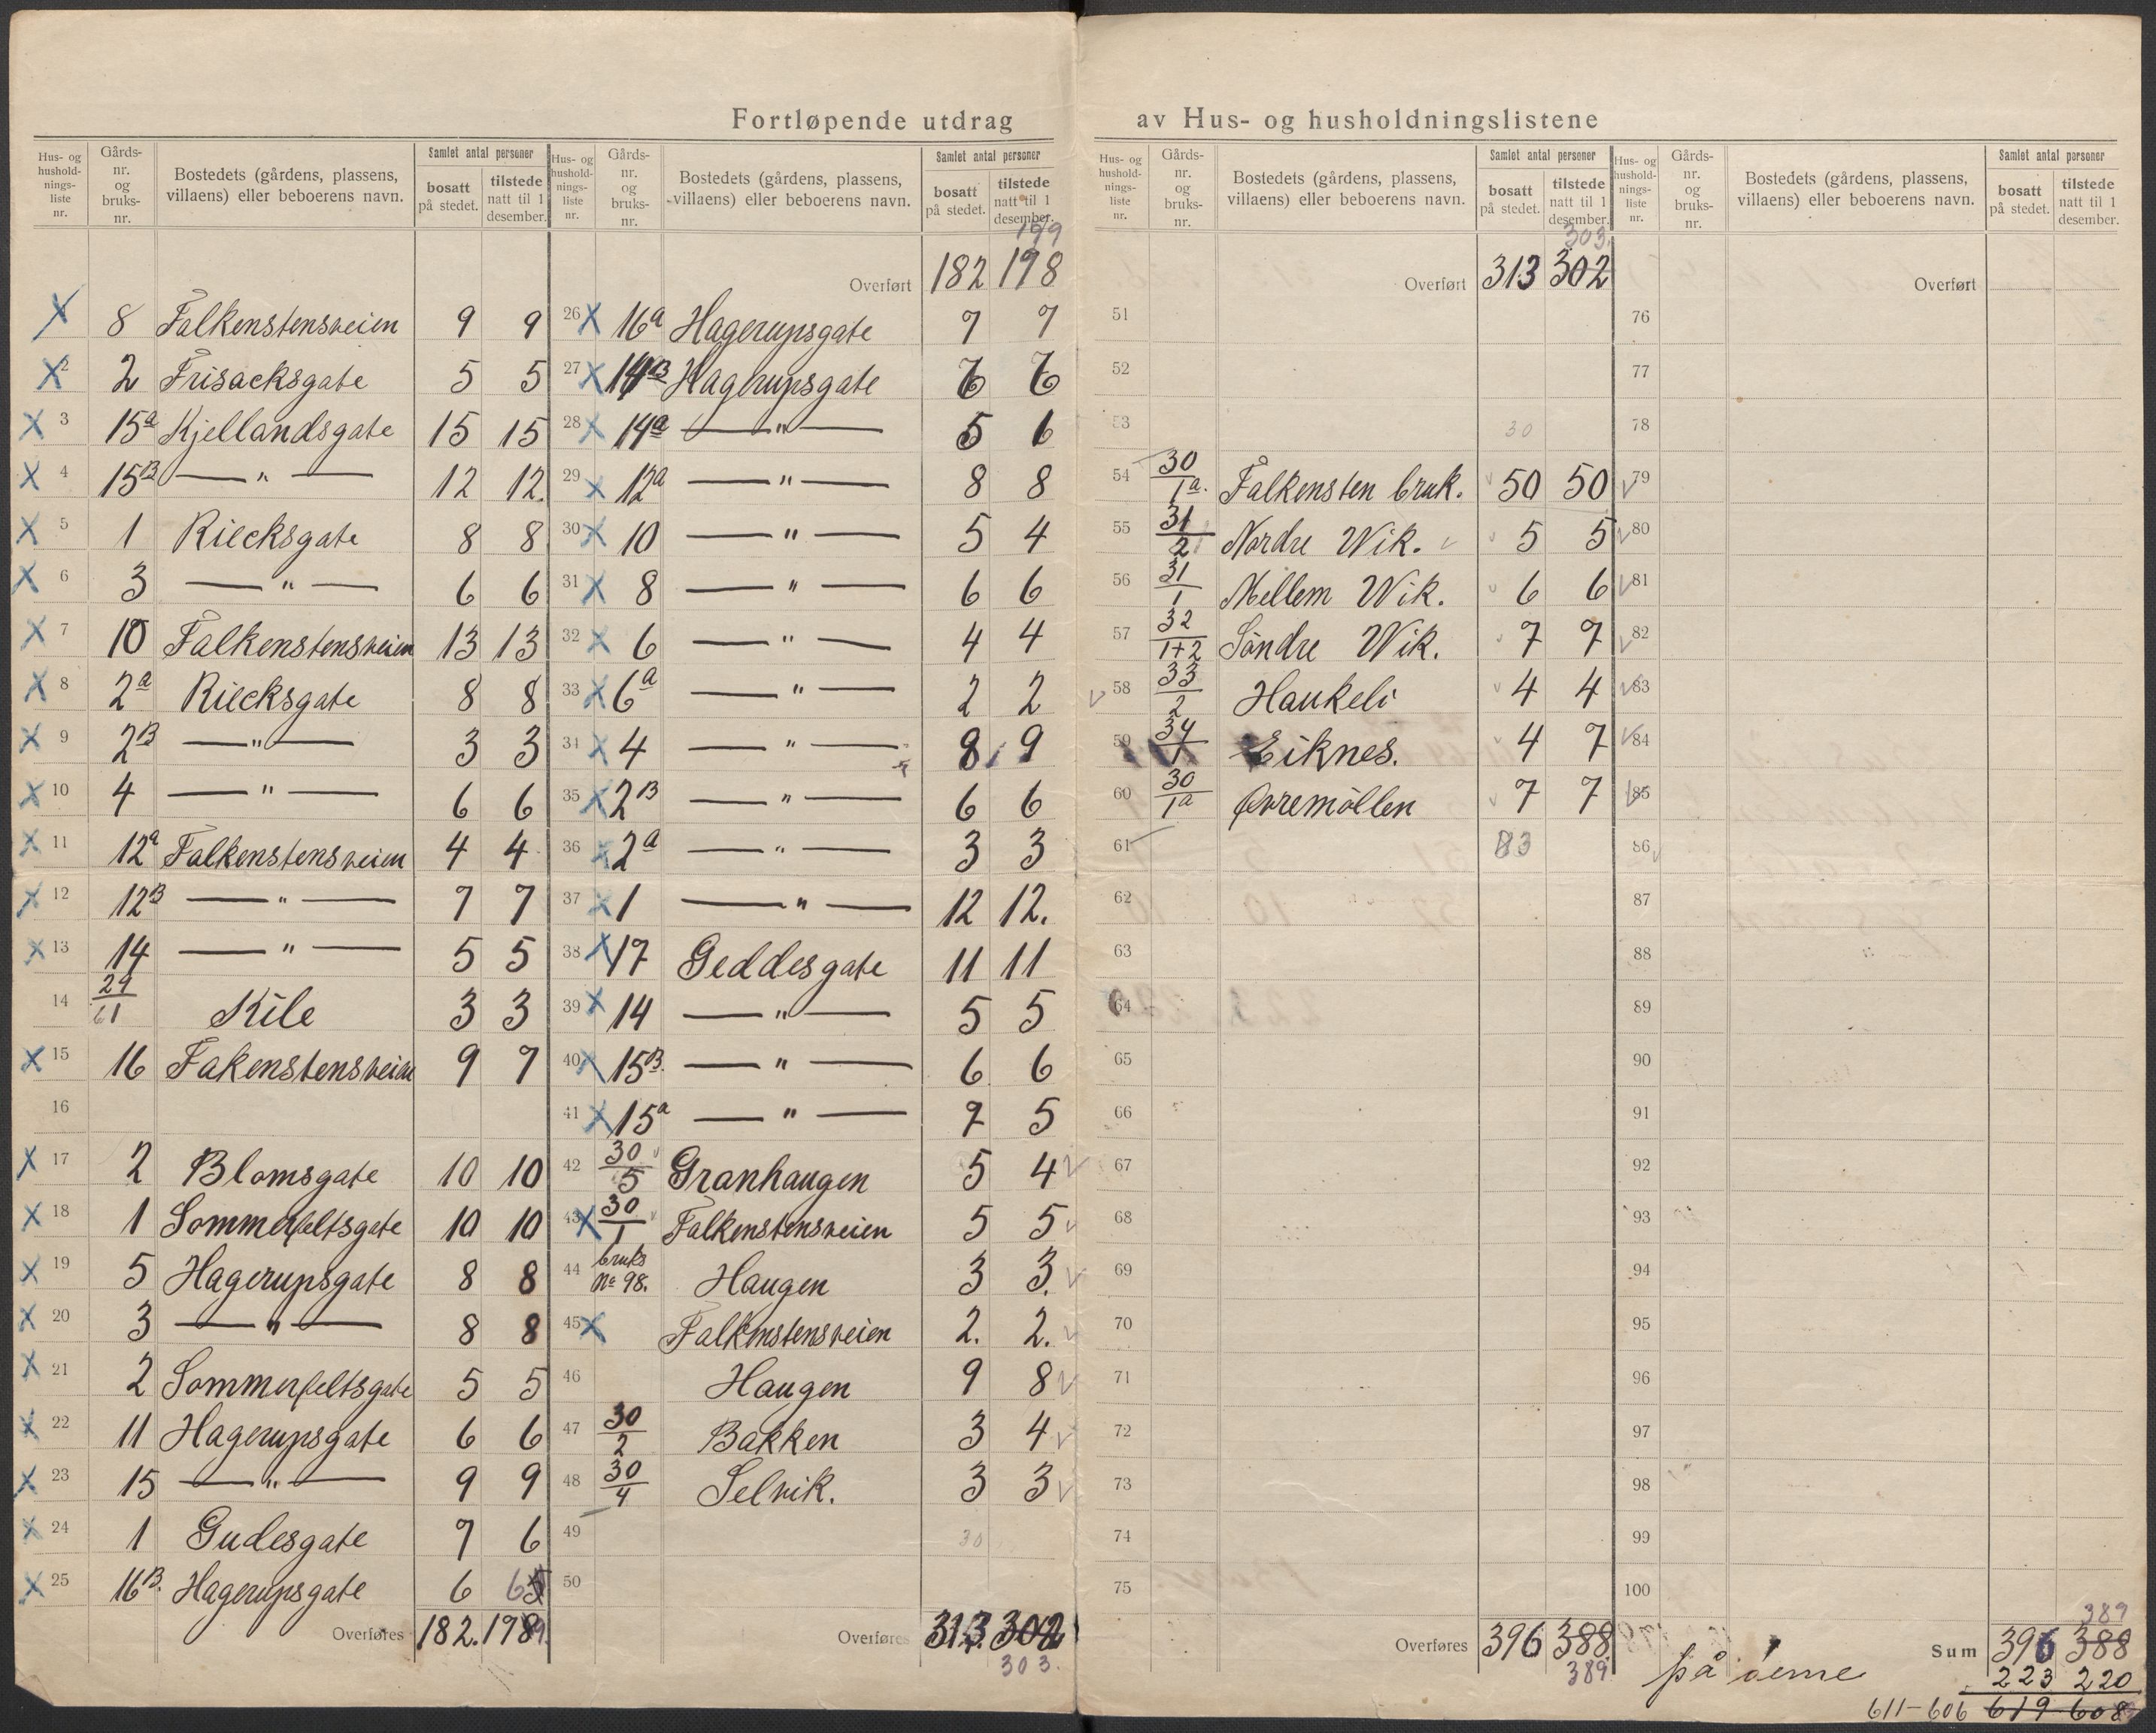 Fortløpende utdrag av Hus- og husholdningslistene
Hus- og husholdnings-liste nr. Gårds-nr. og bruks-nr. Bostedets (gårdens, plassens, villaens) eller beboerens navn. Samlet antal personer bosatt på stedet. tilstede natt til 1 desember.
8 Falkenstensveien 9 9
2 2 Frisacksgate 5 5
3 15a Kjellandsgate 15 15
4 15B — " — 12 12.
5 1 Riecksgate 8 8
6 3 — " — 6 6
7 10 Falkenstensveien 13 13
8 2a Riecksgate 8 8
9 2B — " — 3 3
10 4 — " — 6 6
11 12a Falkenstensveien 4 4
12 12B — " — 7 7
13 14 — " — 5 5
14 29/61 Kile 3 3
15 16 Fakenstensveien 9 7
16
17 2 Blomsgate 10 10
18 1 Sommerfeltsgate 10 10
19 5 Hagerupsgate 8 8
20 3 — " — 8 8
21 2 Sommerfeltsgate 5 5
22 11 Hagerupsgate 6 6
23 15 — " — 9 9
24 1 Gudesgate 7 6
25 16B. Hagerupsgate 6 6
Overføres 182. 179.
Hus- og husholdnings-liste nr. Gårds-nr. og bruks-nr. Bostedets (gårdens, plassens, villaens) eller beboerens navn. Samlet antal personer bosatt på stedet. tilstede natt til 1 desember.
179
Overført 182 178
26 X 16a Hagerupsgate 7 7
27 X 14B Hagerupsgate 6 6
28 X 14a — " — 5 6
29 X 12a — " — 8 8
30 X 10 — " — 5 4
31 X 8 — " — 6 6
32 X 6 — " — 4 4
33 X 6a — " — 2 2
34 X 4 — " — 8 9
35 X 2B — " — 6 6
36 X 2a — " — 3 3
37 X 1 — " — 12 12.
38 X 17 Geddesgate 11 11
39 X 14 — " — 5 5
40 X 15B. — " — 6 6
41 X 15a — " — 7 5
42 30/5 Granhaugen 5 4
43 X 30/1 Falkenstensveien 5 5
44 bruks No 98. Haugen 3 3.
45 X Falkenstensveien 2. 2.
46 Haugen 9 8
47 30/2 Bakken 3 4
48 30/4 Selvik. 3 3
49 30
50
Overføres 313 302
303.
Hus- og husholdnings-liste nr. Gårds-nr. og bruks-nr. Bostedets (gårdens, plassens, villaens) eller beboerens navn. Samlet antal personer bosatt på stedet. tilstede natt til 1 desember.
303.
Overført 313 302
51
52
53 30
54 30/1a. Falkensten bruk. 50 50
55 31/2 Nordre Wik. 5 5
56 31/1 Mellem Wik. 6 6
57 32/1+2 Söndre Wik. 7 7
58 33/2 Haukeli 4 4
59 34/1 Eiknes. 4 7
60 30/1a Øvremöllen 7 7
61 83
62
63
64
65
66
67
68
69
70
71
72
73
74
75
Overføres 396 388
389.
Hus- og husholdnings-liste nr. Gårds-nr. og bruks-nr. Bostedets (gårdens, plassens, villaens) eller beboerens navn. Samlet antal personer bosatt på stedet. tilstede natt til 1 desember.
Overført
76
77
78
79
80
81
82
83
84
85
86
87
88
89
90
91
92
93
94
95
96
97
98
99
100
389
Sum 396 388
på öerne 223 220
611-606 619 608